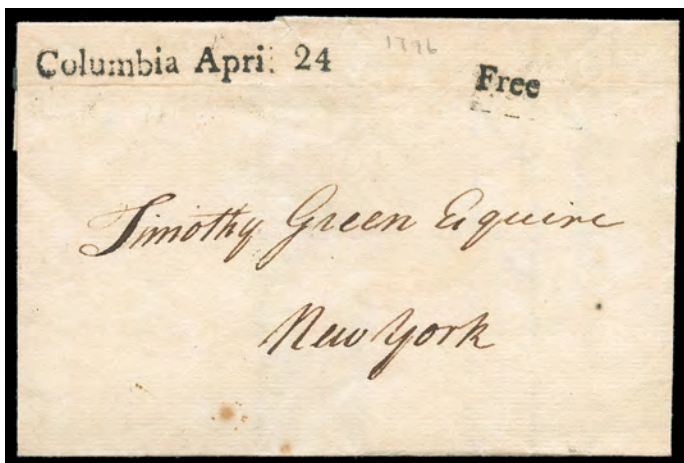 Columbia April 24
1796
Free
Timothy Green Esquire
New York